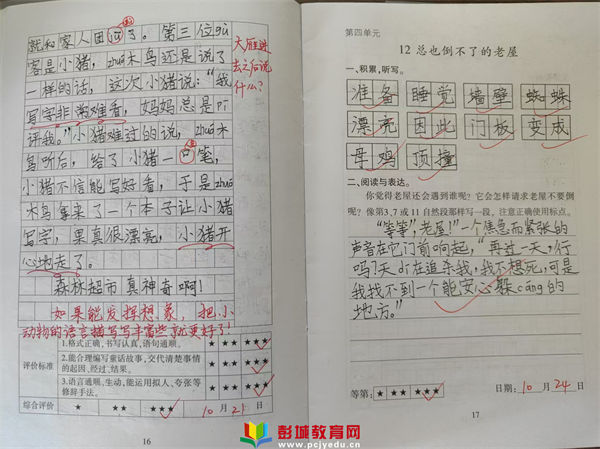 就和家人团过了。第三位gù
客是小猪，zhuó木鸟还是说了
一样的话，这次小猪说：“我
写字非常难看，妈妈总是pī
评我。”小猪难过的说，zhuó木
鸟听后，给了小猪一口笔，
小猪不信能写好看，于是zhuó
木鸟拿来了一个本子让小猪
写字，果真很漂亮，小猪开
心地走了。
森林超市真神奇啊！
大雁进
去之后说
什么？
如果能发挥想象，把小
动物的语言描写写丰富些就更好了！
评价标准
1.格式正确，书写认真，语句通顺。
★ ★★ ★★★
2.能合理编写童话故事，交代清楚事情
的起因、经过、结果。
★ ★★ ★★★
3.语言通顺、生动，能运用拟人、夸张等
修辞手法。
★ ★★ ★★★
综合评价 ★ ★★ ★★★ 10月21日
16
第四单元
12 总也倒不了的老屋
一、积累，听写。
准备 睡觉 墙壁 蜘蛛
漂亮 因此 门板 变成
母鸡 顶撞
二、阅读与表达。
你觉得老屋还会遇到谁呢？它会怎样请求老屋不要倒
呢？像第3、7或11自然段那样写一段，注意正确使用标点。
“等等，老屋！”一个焦急而紧张的
声音在它门前响起，“再过一天，行
吗？天dí在追杀我，我不想死，可是
我找不到一个能安心躲cáng的
地方。”
等第： ★ ★★ ★★★
日期：10月24日
17
彭城教育网
www.pcjyedu.cn